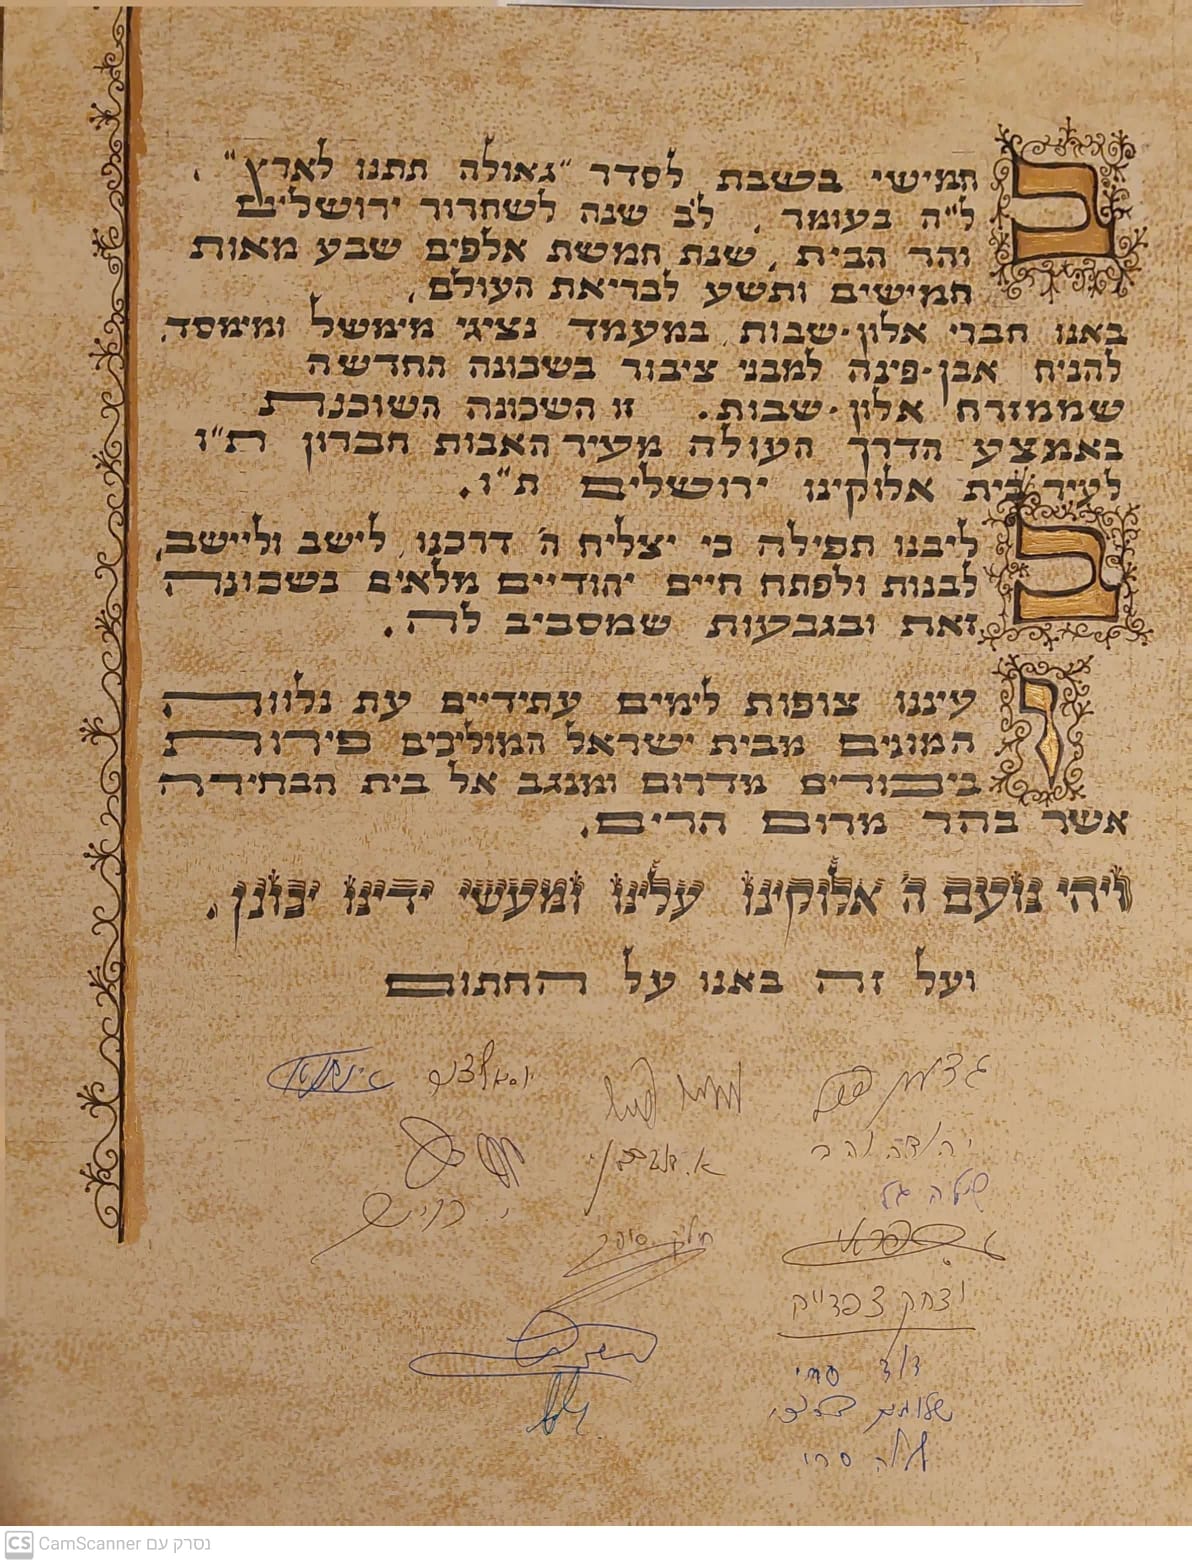 בחמישי בשבת לסדר "גאולה תתנו לארץ",
ל"ה בעומר, ל"ב שנה לשחרור ירושלים
והר הבית, שנת חמשת אלפים שבע מאות
חמישים ותשע לבריאת העולם,
באנו חברי אלון-שבות, במעמד נציגי מימשל ומימסד,
להניח אבן-פינה למבני ציבור בשכונה החדשה
שממזרח אלון-שבות. זו השכונה השוכנת
באמצע הדרך העולה מעיר האבות חברון ת"ו
לעיר בית אלוקינו ירושלים ת"ו.
בליבנו תפילה כי יצליח ה' דרכנו, לישב וליישב,
לבנות ולפתח חיים יהודיים מלאים בשכונה
זאת ובגבעות שמסביב לה.
ועיננו צופות לימים עתידיים עת נלווה
המונים מבית ישראל המוליכים פירות
ביכורים מדרום ומנגב אל בית הבחירה
אשר בהר מרום הרים.
ויהי נועם ה' אלוקינו עלינו ומעשי ידינו יכונן.
ועל זה באנו על החתום
יהודה
שילה גל
יצחק
דוד
סרי
נסרק עם CamScanner
CS